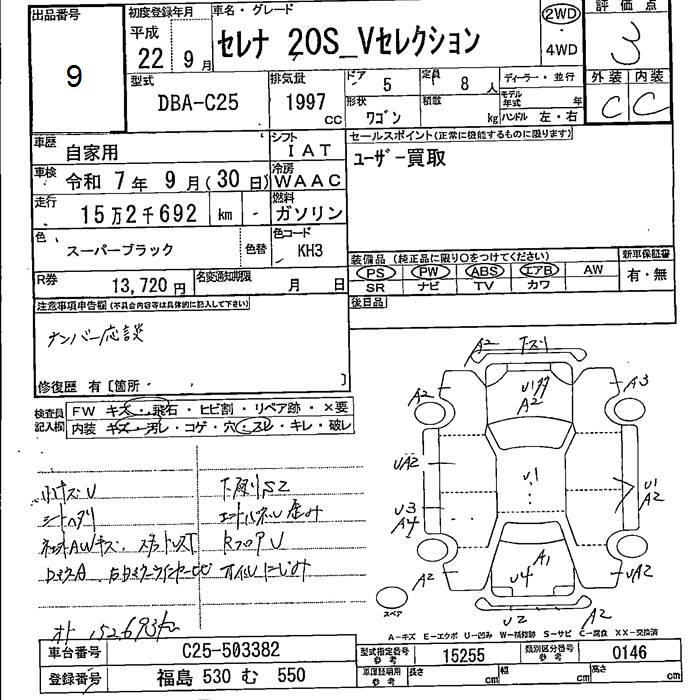 出品番号
9
初度登録年月
平成
22年 9月
車名・グレード
セレナ 20S_Vセレクション
2WD
・
4WD
評価点
3
型式
DBA-C25
排気量
1997
cc
ドア
5
定員
8人
ディーラー・並行
形状
ワゴン
積載
kg
モデル年式
年
ハンドル 左・右
外装 内装
C C
車歴
自家用
シフト
IAT
セールスポイント(正常に機能するものに限ります)
ユーザー買取
車検
令和 7年 9月(30日)
冷房
WAAC
走行
15万2千692 km
燃料
ガソリン
色
スーパーブラック
色替
色コード
KH3
装備品(純正品に限り○をつけてください)
PS PW ABS エアB AW
SR ナビ TV カワ
新車保証書
有・無
R券
13,720円
名変通知期限
月 日
後日品
注意事項申告欄(不具合内容等は具体的に記入して下さい)
ナンバー応談
修復歴 有[箇所・ ]
検査員記入欄
FW キズ・飛石・ヒビ割・リペア跡・×要
内装 キズ・汚レ・コゲ・穴・スレ・キレ・破レ
小キズU
下廻りS2
シートヘタリ
Rフロアu
オイルにじみ
A2
下スリ
A2
A3
A2
UA2
U1
U3
A4
U1
A2
A1
U4
A2
UA2
U2
A2
スペア
A-キズ E-エクボ U-凹み W-補修跡 S-サビ C-腐食 XX-交換済
車台番号
C25-503382
型式指定番号
参考
15255
類別区分番号
参考
0146
登録番号
福島 530 む 550
車庫証明用
参考
長さ
cm
幅
cm
高さ
cm